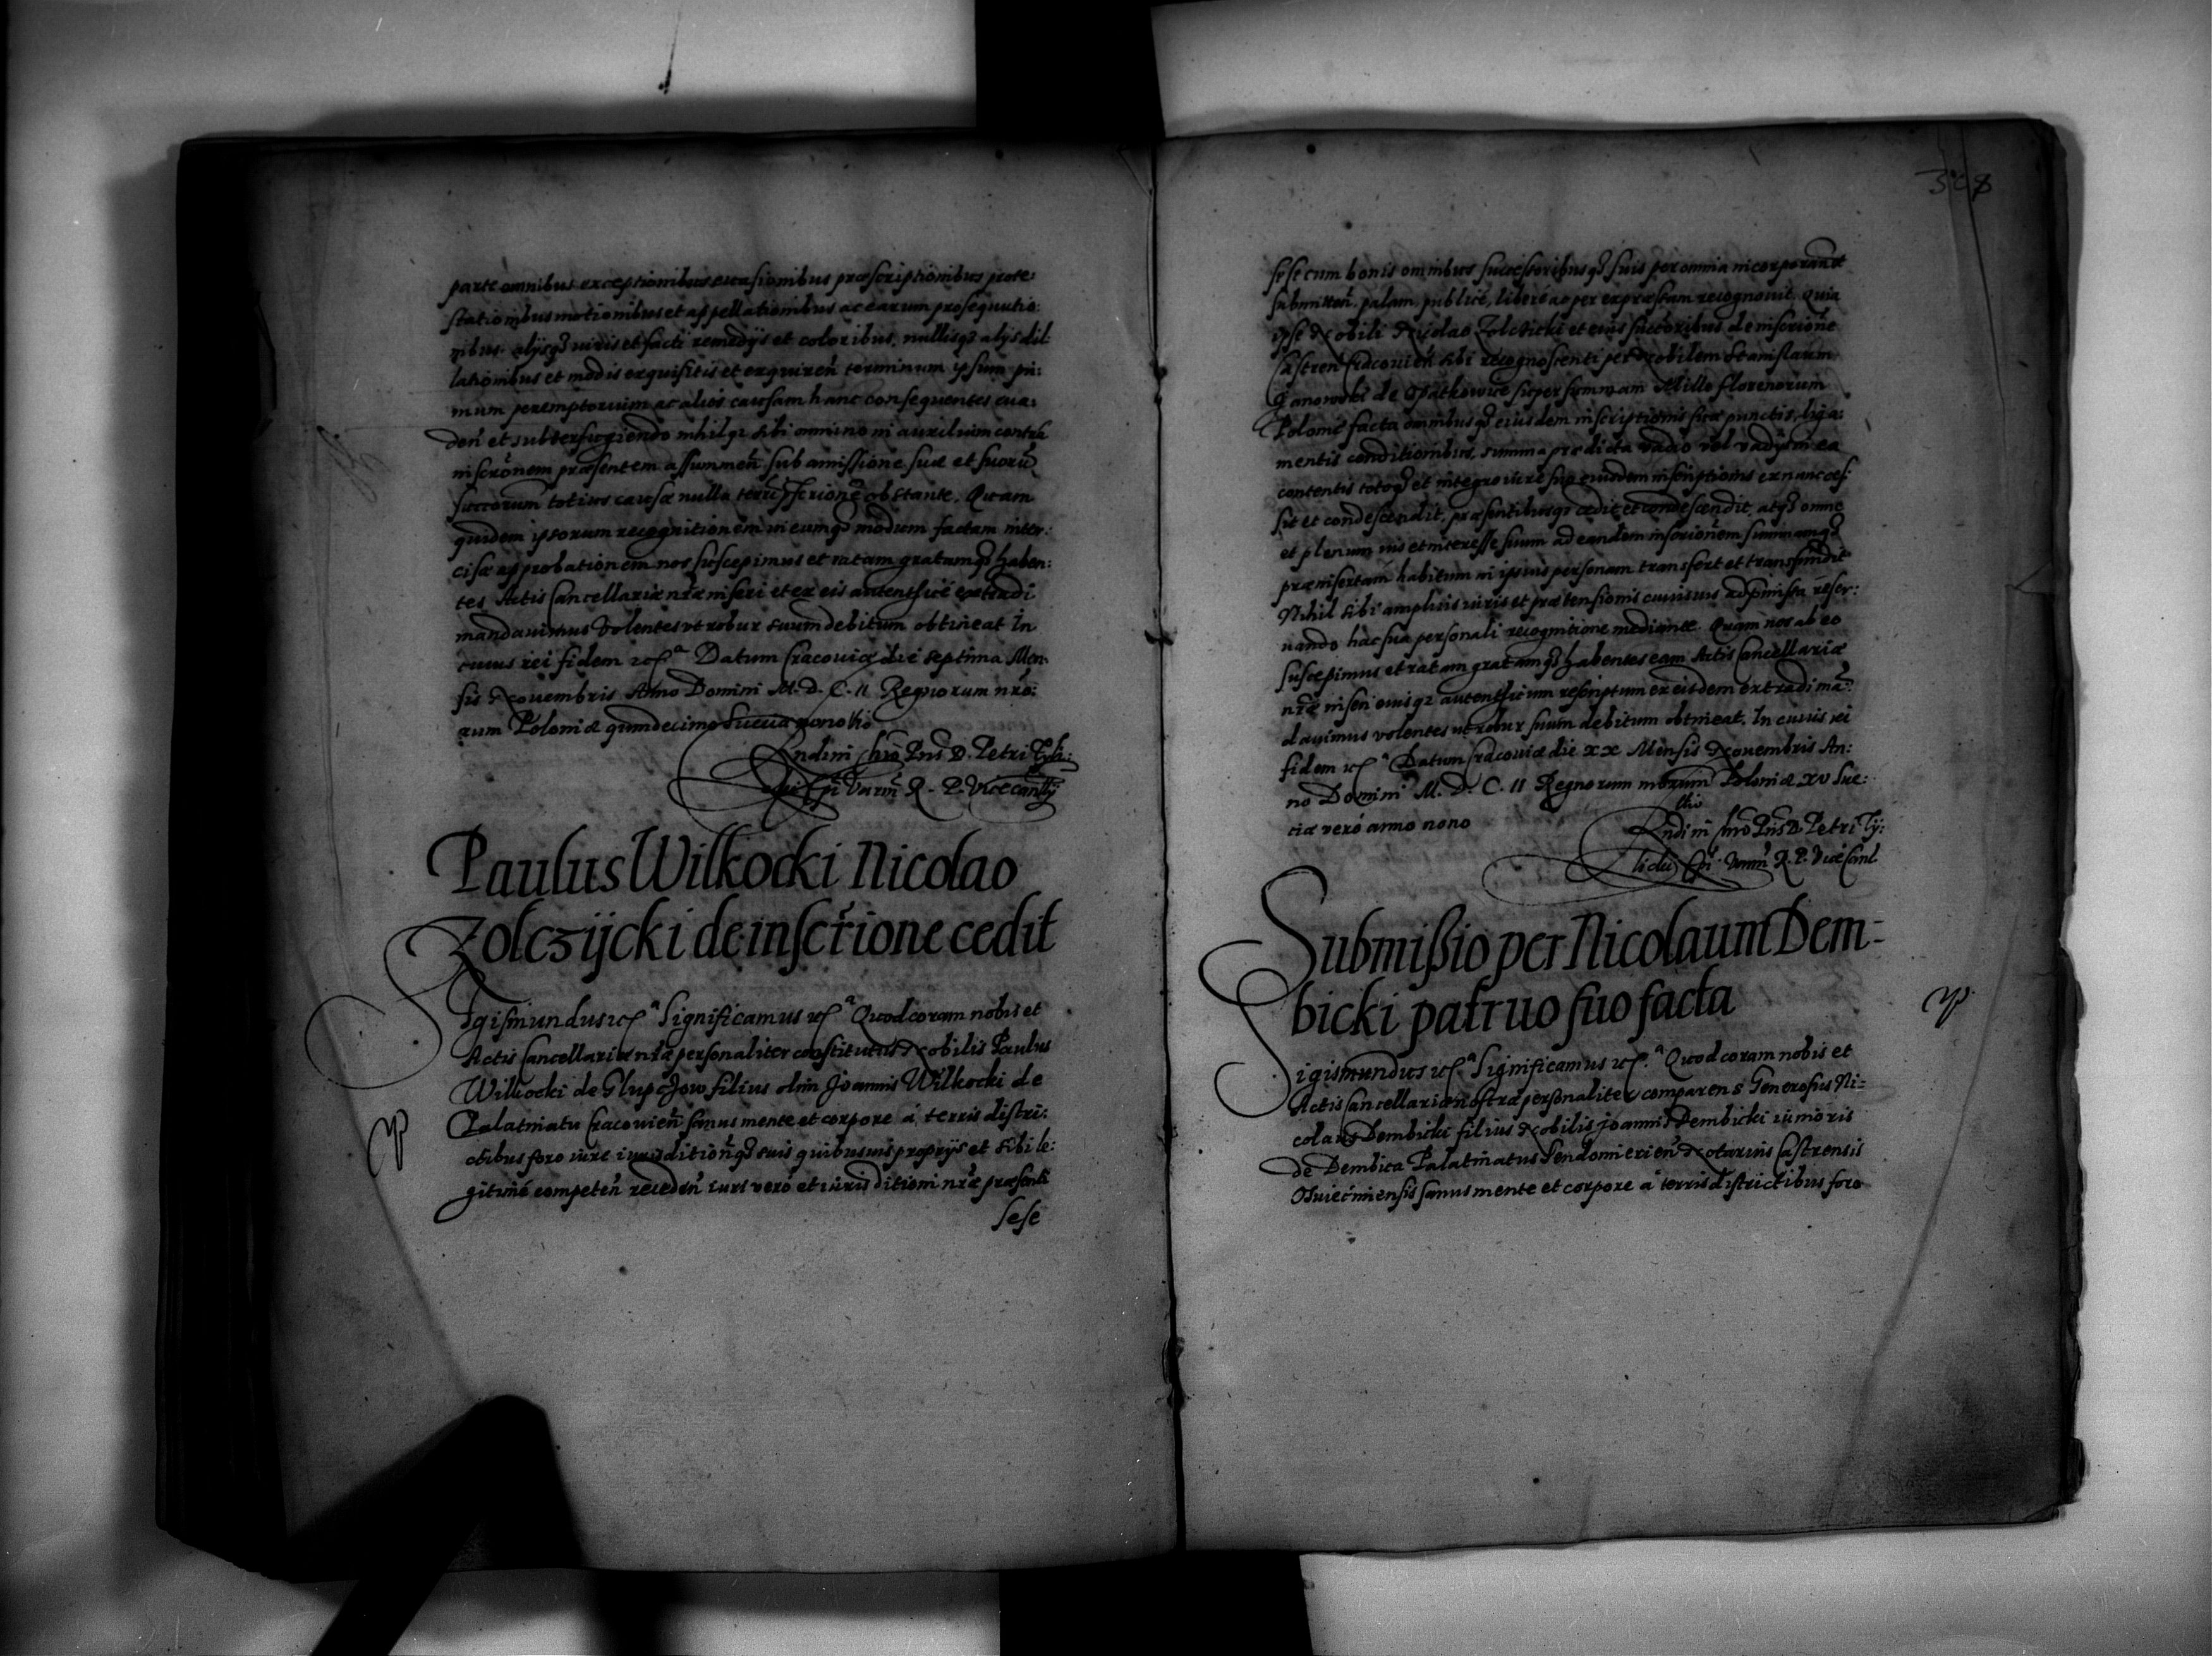 parte omnibus exceptionibus euasionibus præscriptionibus prote:
stationibus motionibus et appellationibus ac earum prosequutio:
nibus alijsq3 iuris et facti remedijs et coloribus, nullisq3 alijs dil:
lationibus et modis exquisitis et exquiren̄ terminum ipsum pri:
mum peremptorium ac alios causam hanc consequentes eua:
den̄ et subterfugiendo nihilq3 sibi omnino in auxilium contra
inscrōnem præsentem assummen̄ sub amissione suæ et suorū
succorum totius causæ nulla obstante. Quam
quidem ipsorum recognitionem in eumq3 modum factam inter:
cisæ approbationem nos suscepimus et ratam gratamq3 haben:
tes Actis Cancellariæ nr̄æ inseri et ex eis autenthicè extradi
mandauimus Volentes vt robur suum debitum obtineat In
cuius rei fidem etc̃ᵃ Datum Cracouiæ die septima Men:
sis Nouembris Anno Domini M. D. C. II Regnorum nr̄o:
rum Poloniæ quindecimo Sueciæ nono
Rndi in Chro Pris D. Petri Tyli:
cki Epi Varm̄ R. P. Vicecan̄ly
Paulus Wilkocki Nicolao
Zolczijcki de inscr̄ione cedit
Sigismundus etc̃ᵃ Significamus etc̃ᵃ Quod coram nobis et
Actis Cancellariæ nr̄æ personaliter constitutus Nobilis Paulus
Wilkocki de Glupczow filius olim Joannis Wilkocki de
Palatinatu Cracouien̄ sanus mente et corpore á terris distri:
ctibus foro iure iurisdition̄q3 suis quibusuis proprijs et sibi le:
gitimé competen̄ receden̄ iuri veró et iurisditioni nr̄æ præsenti
sese
308
sese cum bonis omnibus successoribusq3 suis per omnia incorporan̄ et
submitten̄. palam publicè, liberè ac per expressam recognouit. Quia
ipse Nobili Nicolao Zolcticki et eius succ̄oribus de inscrione
Castren̄ Cracouien̄ sibi recognoscenti per Nobilem Stanislaum
Ganowski de Opatkowice super summam Mille florenorum
Poloni facta omnibusq3 eiusdem inscriptionis suæ punctis, liga:
mentis conditionibus, summa prædicta vadio vel vadijs in ea
contentis totoq3 et integro iure suo eiusdem inscriptionis ex nunc ces:
sit et condescendit, præsentibusq3 cedit et condescendit, atq3 omne
et plenum ius et interesse suum ad eandem inscrionem summamq3
præinsertam habitum in ipsius personam transfert et transfundit
Nihil sibi amplius iuris et prætensionis cuiusuis ad præmissa reser:
uando hac sua personali recognitione mediante. Quam nos ab eo
suscepimus et ratam gratamq3 habentes eam Actis Cancellariæ
nr̄æ inseri eiusq3 autenthicum rescriptum ex eisdem extradi man̄:
dauimus volentes ut robur suum debitum obtineat. In cuius rei
fidem etc̃ᵃ Datum Cracouiæ die XX Mensis Nouembris An:
no Domini M. D. C. II Regnorum nostrum Poloniæ XV Sue:
ciæ veró anno nono
Rndi in Chro Pris D. Petri Ty:
licki Epi Varm̄ R. P. Vice Can̄l
Submißio per Nicolaum Dem-
bicki patruo suo facta
Sigismundus etc̃ᵃ Significamus etc̃.ᵃ Quod coram nobis et
Actis Cancellariæ nostræ personaliter comparens Generosus Ni=
colaus Dembicki filius Nobilis Joannis Dembicki iunioris
de Dembica Palatinatus Sendomirien̄ Notarius Castrensis
Osuiecimiensis sanus mente et corpore á terris districtibus foro